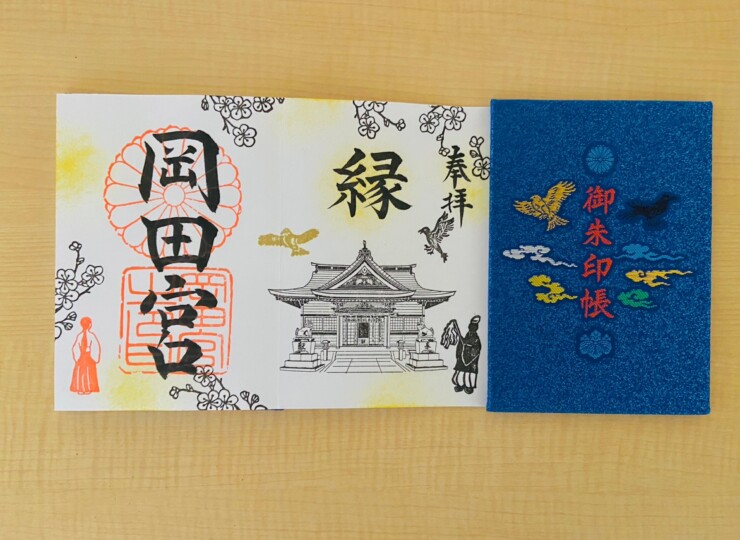 奉拝
縁
岡田宮
御朱印帳